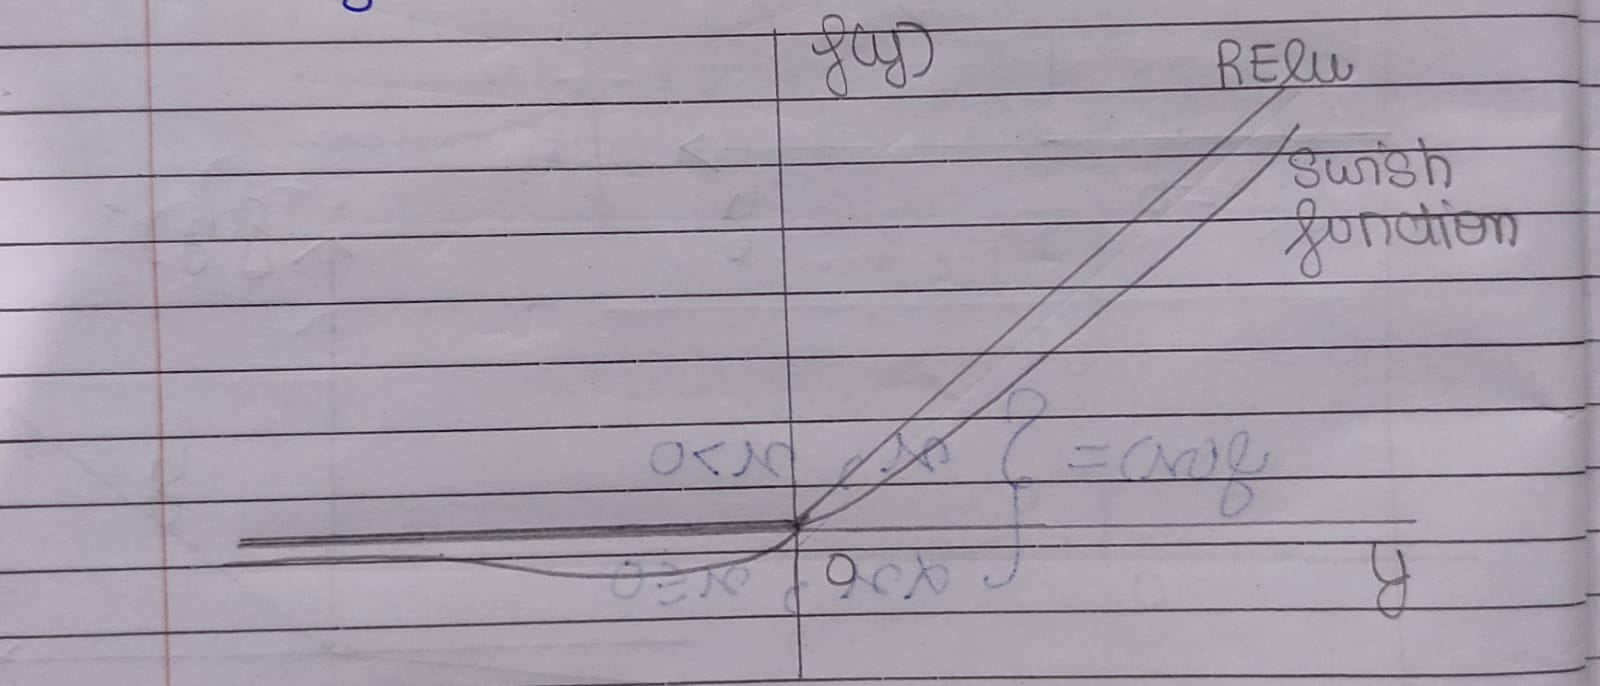 f(y)
RElu
Swish
function
0
y